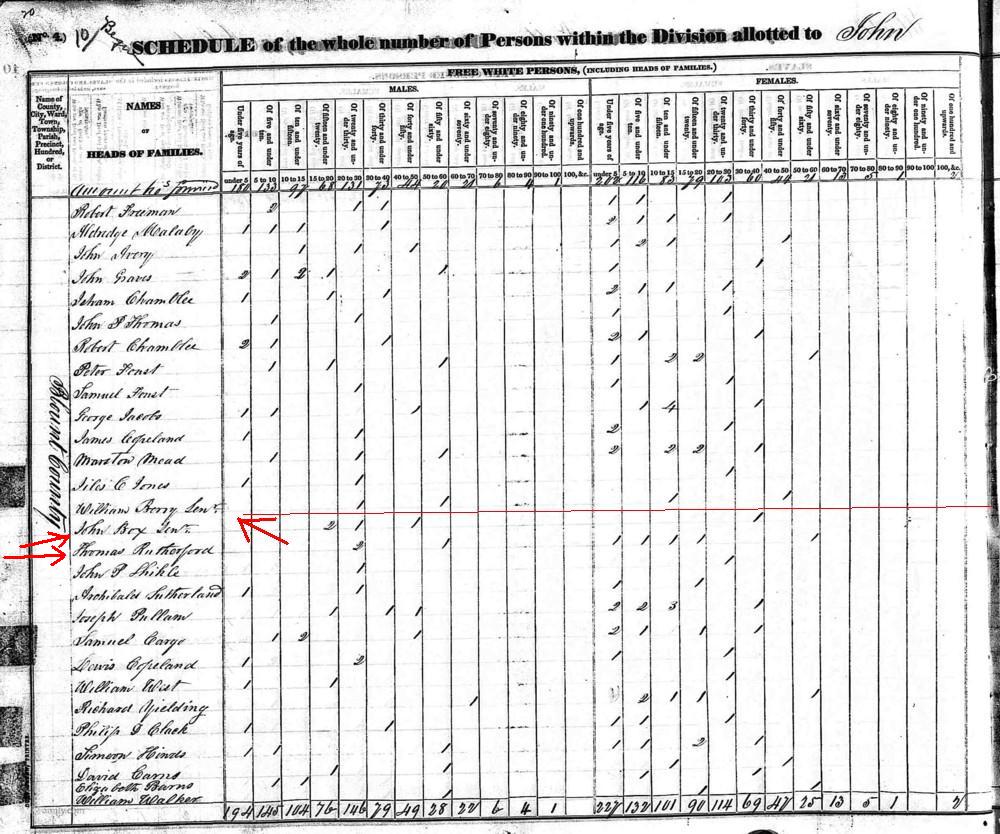 20
No. 4.) 10/
SCHEDULE of the whole number of Persons within the Division allotted to John
FREE WHITE PERSONS, (INCLUDING HEADS OF FAMILIES.)
MALES. FEMALES.
Name of County, City, Ward, Town, Township, Parish, Precinct, Hundred, or District.
NAMES OF HEADS OF FAMILIES.
Under five years of age. Of five and under ten. Of ten and under fifteen. Of fifteen and under twenty. Of twenty and under thirty. Of thirty and under forty. Of forty and under fifty. Of fifty and under sixty. Of sixty and under seventy. Of seventy and under eighty. Of eighty and under ninety. Of ninety and under one hundred. Of one hundred and upwards. Under five years of age. Of five and under ten. Of ten and under fifteen. Of fifteen and under twenty. Of twenty and under thirty. Of thirty and under forty. Of forty and under fifty. Of fifty and under sixty. Of sixty and under seventy. Of seventy and under eighty. Of eighty and under ninety. Of ninety and under one hundred. Of one hundred and upwards.
under 5 5 to 10 10 to 15 15 to 20 20 to 30 30 to 40 40 to 50 50 to 60 60 to 70 70 to 80 80 to 90 90 to 100 100, &c. under 5 5 to 10 10 to 15 15 to 20 20 to 30 30 to 40 40 to 50 50 to 60 60 to 70 70 to 80 80 to 90 90 to 100 100, &c.
Amount 180 133 97 68 131 73 44 20 21 6 4 1 208 116 83 79 103 60 44 21 13 5 1 2
Blount County
Robert Freeman 2 1 1 1 1 1
Aldridge Malaby 1 1 1 1 2 1 1
John Ivery 1 1 1 1 2 1 1
John Graves 2 1 2 1 1 1 1
Isham Chamblee 1 1 1 2 1 1 1
John P Thomas 1 1 1 1
Robert Chamblee 2 1 1 2 1 1
Peter Foust 1 1 1 1 2 2 1
Samuel Foust 1 1 1
George Jacobs 1 1 1 1 4 1
James Copeland 1 1 2 1
Marston Mead 1 1 1 2 2 2 1
Giles C Jones 1 1 1
William Berry Senr. 1 1 1 1
John Box Senr. 2 1 1 1
Thomas Rutherford 2 1 1 1 1 1 1
John P Shikle 1 1
Archibald Sutherland 1 1 1 1
Joseph Pullam 1 1 1 2 2 3 1
Samuel Cargo 1 2 1 2 1 1 1
Lewis Copeland 1 2 1 1
William West 1 1 1
Richard Yielding 1 2 1 1 1
Philip D Clack 1 1 1 1 1
Simeon Hinds 1 1 1 1 1 2 1
David Carns 1 1 1 1
Elizabeth Barns 1 1 1 1
William Walker
194 145 104 76 146 79 49 28 22 6 4 1 227 132 101 90 114 69 47 25 13 5 1 2